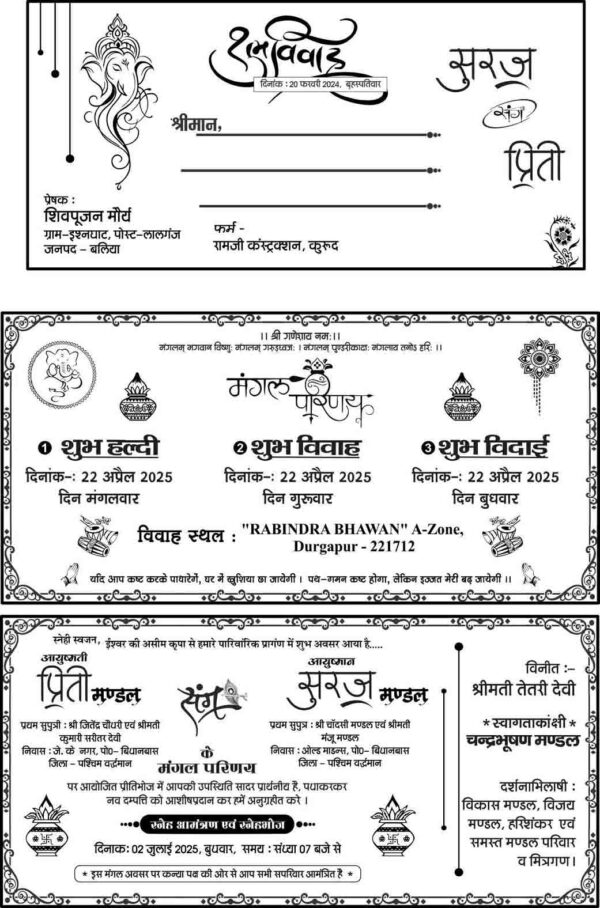 शुभ विवाह
दिनांक : 20 फरवरी 2024, बृहस्पतिवार
सुरज
संग
प्रिती
श्रीमान,
प्रेषक :
शिवपूजन मौर्य
ग्राम-इश्नघाट, पोस्ट-लालगंज
जनपद - बलिया
फर्म -
रामजी कंस्ट्रक्शन, कुरूद
।। श्री गणेशाय नमः।।
मंगलम् भगवान विष्णुः मंगलम् गरुड़ध्वजः । मंगलम् पुण्डरीकाक्षः मंगलाय तनोऽ हरिः ।।
मंगल परिणय
1 शुभ हल्दी
दिनांक-: 22 अप्रैल 2025
दिन मंगलवार
2 शुभ विवाह
दिनांक-: 22 अप्रैल 2025
दिन गुरूवार
3 शुभ विदाई
दिनांक-: 22 अप्रैल 2025
दिन बुधवार
विवाह स्थल : "RABINDRA BHAWAN" A-Zone,
Durgapur - 221712
यदि आप कष्ट करके पधारेगें, घर में खुशिया छा जायेगी । पथ-गमन कष्ट होगा, लेकिन इज्जत मेरी बढ़ जायेगी ।।
स्नेही स्वजन, ईश्वर की असीम कृपा से हमारे पारिवारिक प्रागंण में शुभ अवसर आया है.....
आयुष्मती
प्रिती मण्डल
प्रथम सुपुत्री : श्री जितेंद्र चौधरी एवं श्रीमती
कुमारी सरीतर देवी
निवास : जे. के नगर, पो0- बिधानबास
जिला - पश्चिम वर्द्धमान
संग
आयुष्मान
सुरज मण्डल
प्रथम सुपुत्र : श्री चाँदसी मण्डल एवं श्रीमती
मंजू मण्डल
निवास : ओल्ड माडन्स, पो0- बिधानबास
जिला - पश्चिम वर्द्धमान
के
मंगल परिणय
पर आयोजित प्रीतिभोज में आपकी उपस्थिति सादर प्रार्थनीय है, पधाकरकर
नव दम्पत्ति को आशीषप्रदान कर हमें अनुग्रहीत करे ।
स्नेह आमंत्रण एवं स्नेहभोज
दिनाकः 02 जुलाई 2025, बुधवार, समय : संध्या 07 बजे से
* इस मंगल अवसर पर कन्या पक्ष की ओर से आप सभी सपरिवार आमंत्रित है *
विनीत :-
श्रीमती तेतरी देवी
*स्वागताकांक्षी *
चन्द्रभूषण मण्डल
दर्शनाभिलाषी :
विकास मण्डल, विजय
मण्डल, हरिशंकर एवं
समस्त मण्डल परिवार
व मित्रगण।